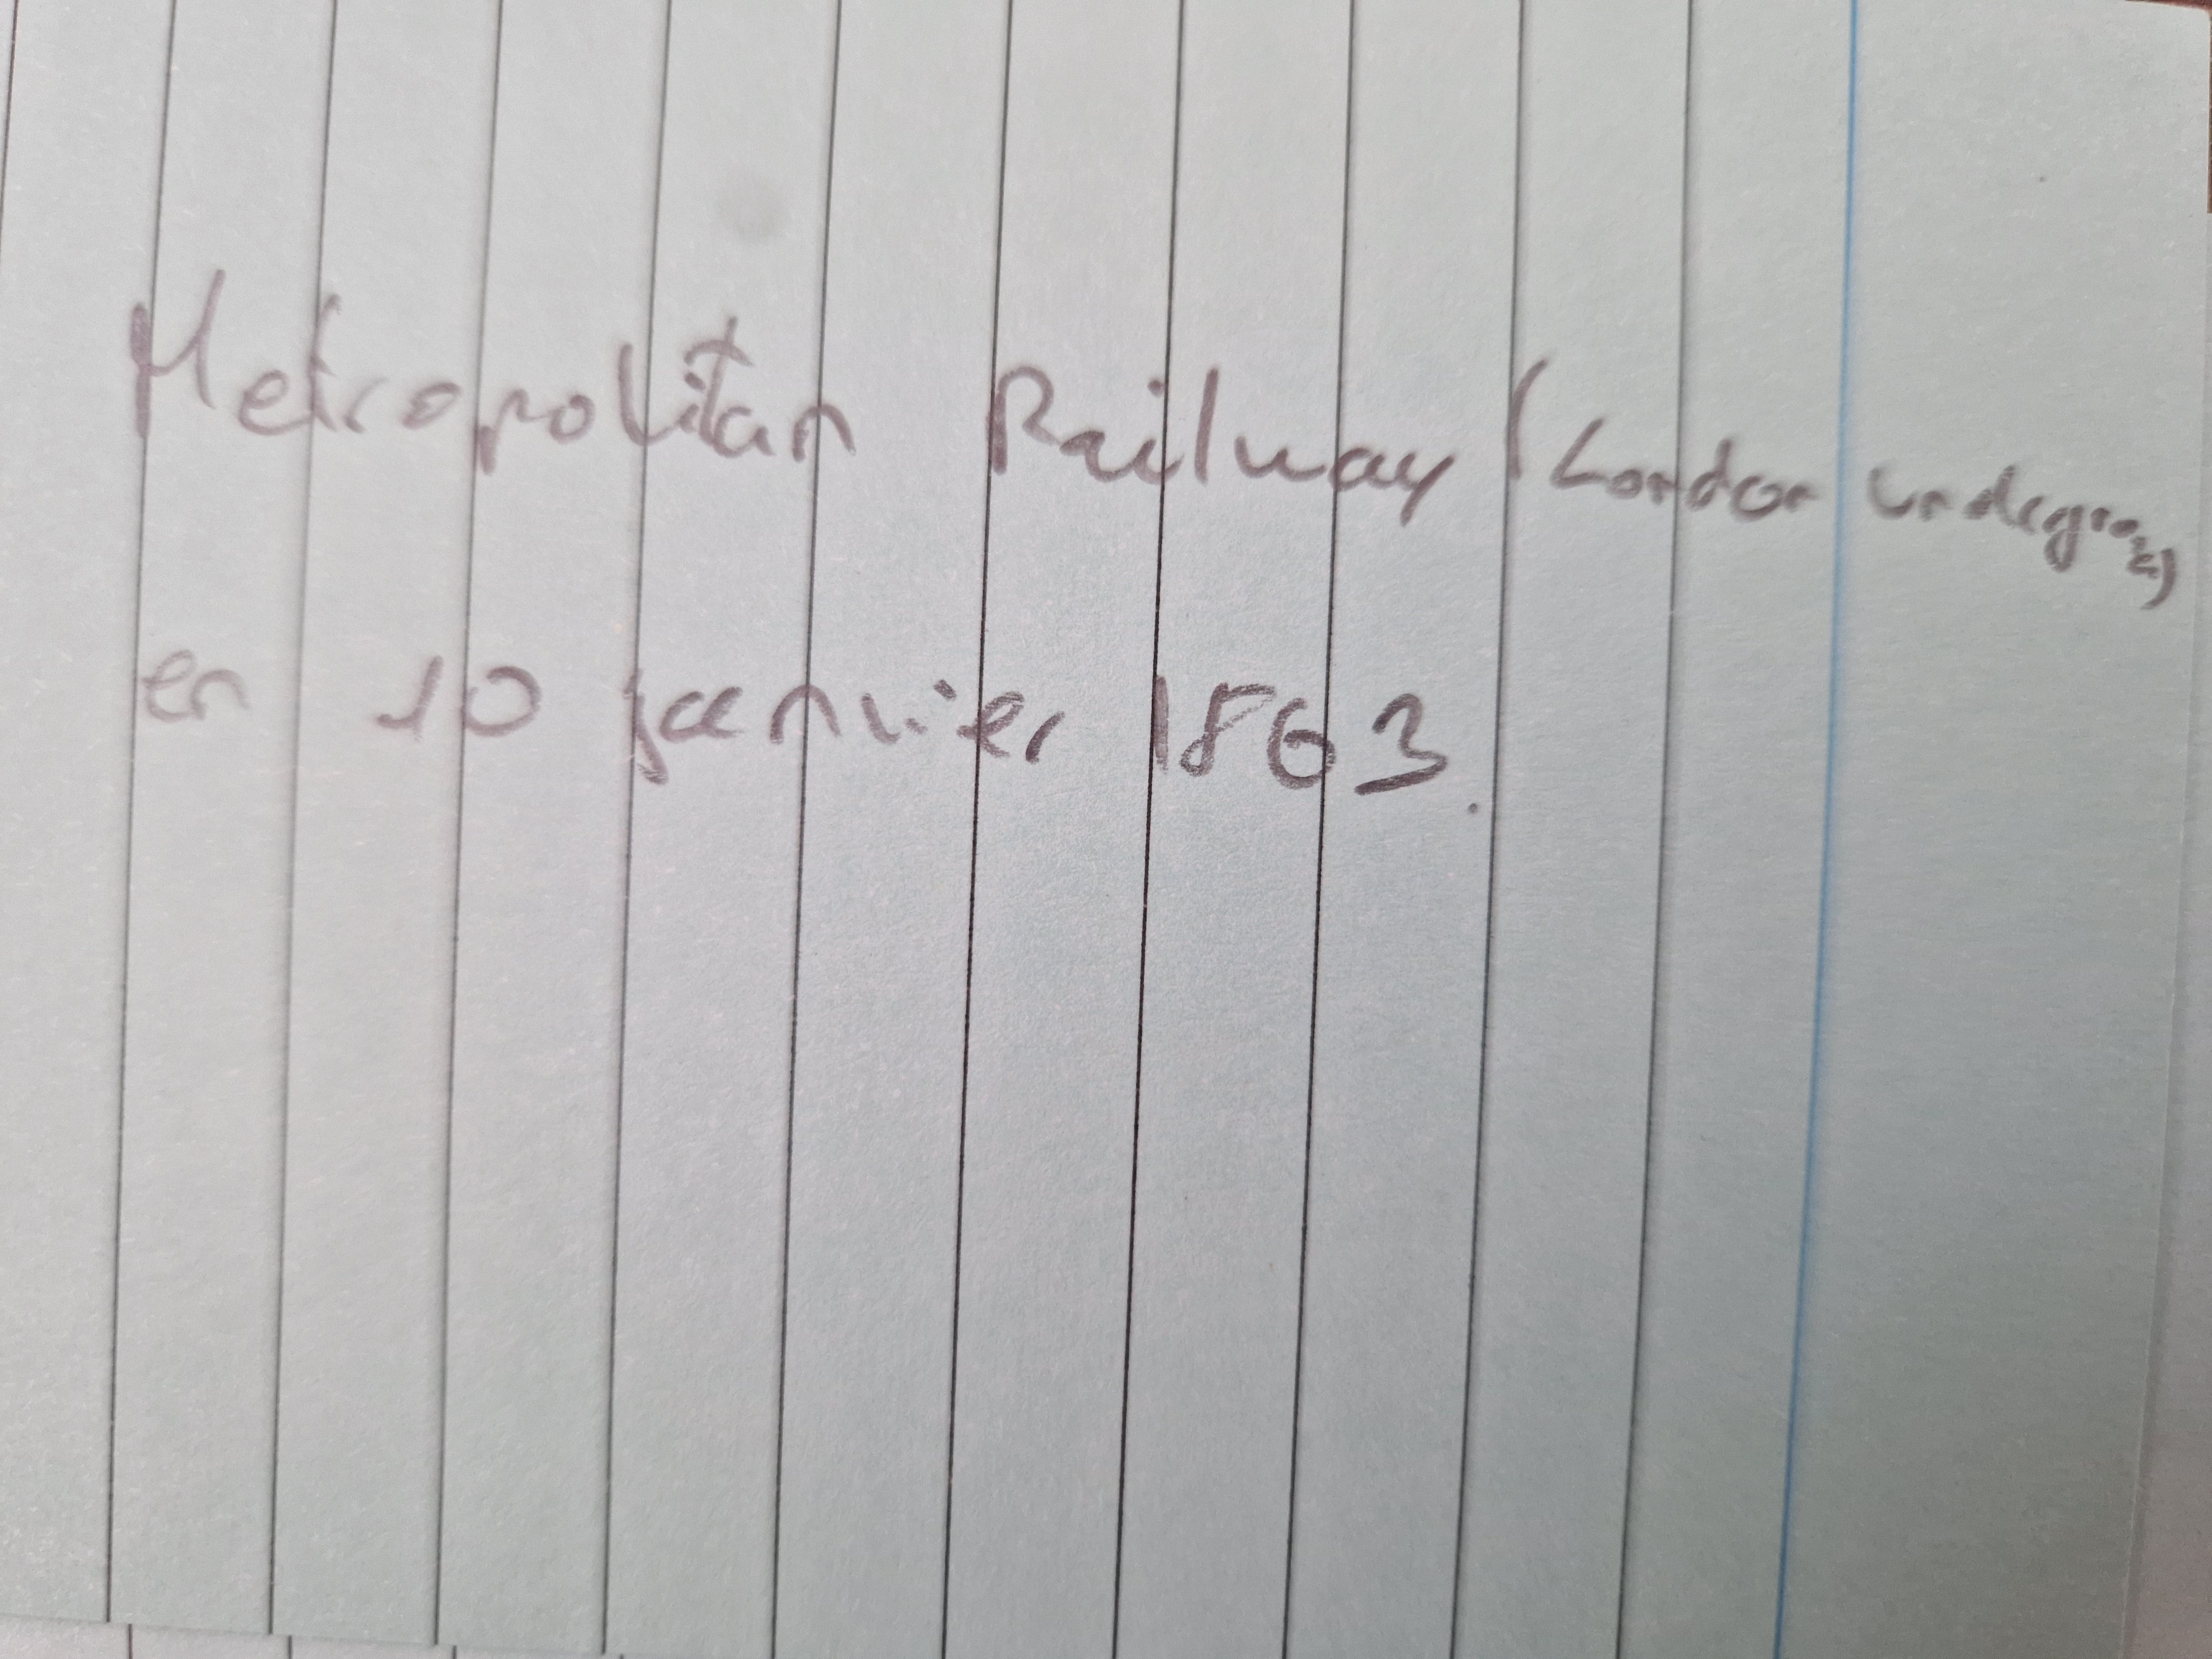 Metropolitan Railway (London undergro
en 10 janvier 1863.